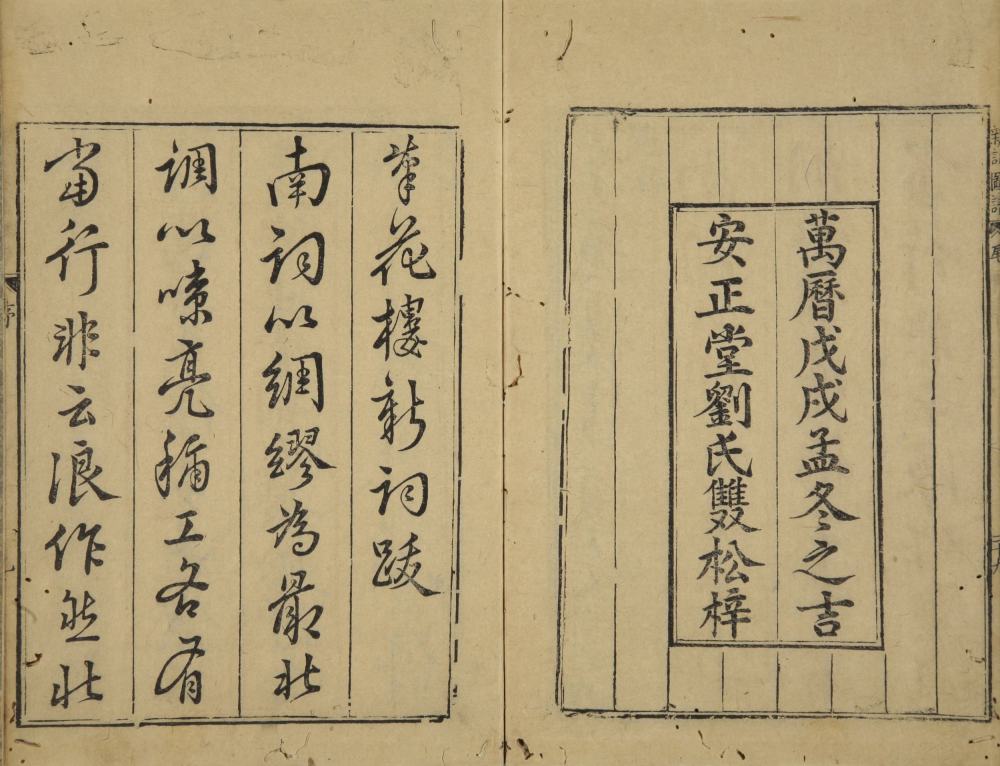 萬曆戊戌孟冬之吉
安正堂劉氏雙松梓
花樓新詞跋
南詞以綢繆爲最北
調以嘹亮稱工各有
當行非云浪作然北
序